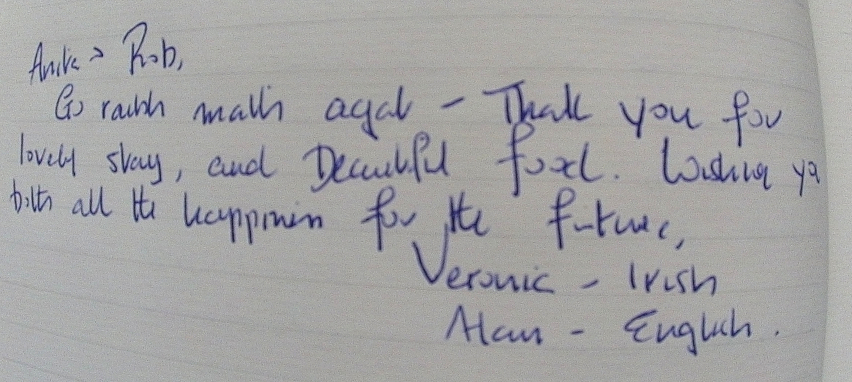 Anita > Rob,
Go raibh maith agat - Thank you for
lovely stay, and Beautiful food. Wishing ya
both all the happiness for the future,
Veronic - Irish
Alan - English.